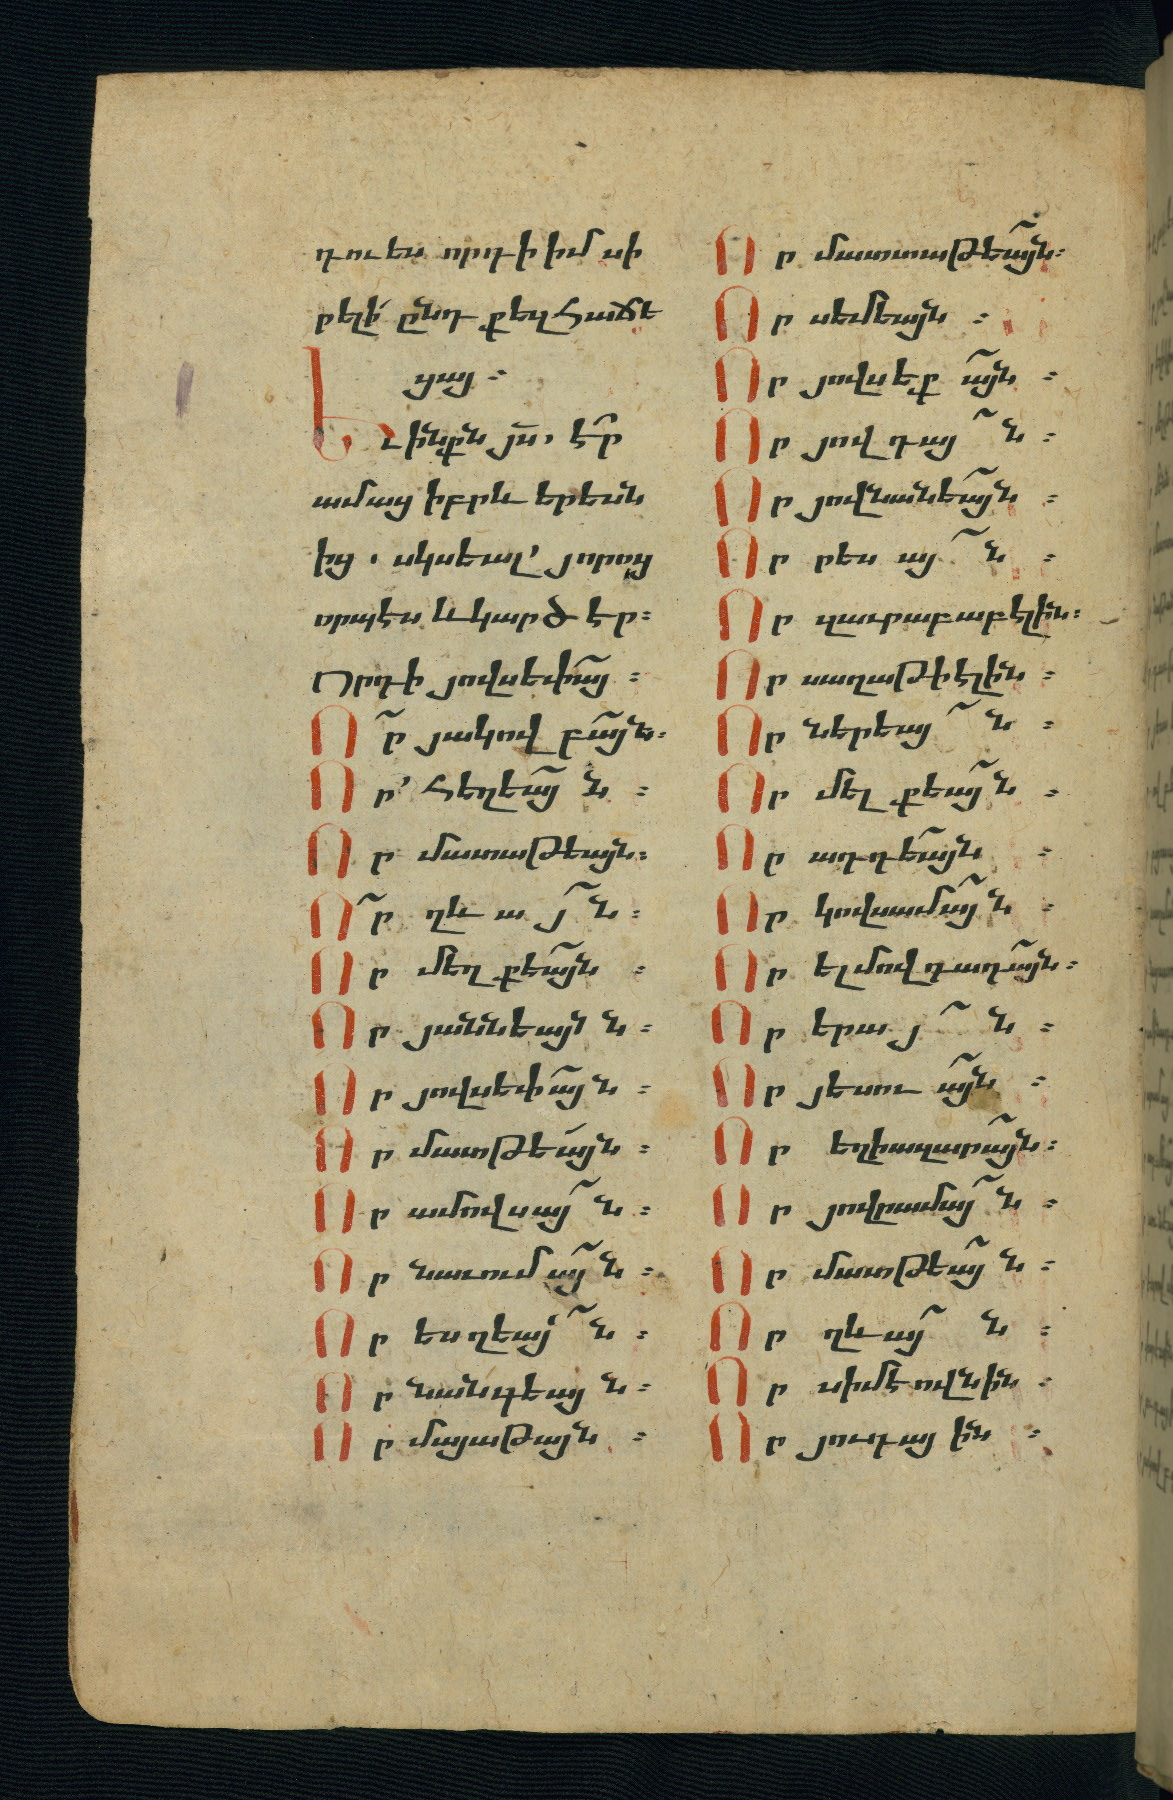 դու ես որդի իմ սի
րելի՛ ընդ քեզ հաճե
ցայ ։
Եւ ինքն յս՝ է̃ր
ամաց իբրև երեսն
ից ․ սկսեալ՝ յորոց
որպէս և կարծ էր։
Որդի յովսեփա̃յ ։
Ո̃ր յակովբա̃յն։
Որ՝ հեղեա̃յն ։
Որ մատաթեայն։
Ո̃ր ղևայ̃ն ։
Որ մեղքեա̃յն ։
Որ յաննեայն ն ։
Որ յովսեփա̃յն ։
Որ մատթեա̃յն ։
Որ ամովսայ̃ն ։
Որ նաւումայ̃ն ։
Որ եսղեայ̃ն ։
Որ նանգեայն ։
Որ մայաթայն ։
Որ մատտաթեա̃յն։
Որ սեմեայն ։
Որ յովսեքա̃յն ։
Որ յովդայ̃ն ։
Որ յովնանեա̃յն ։
Որ րեսայ̃ն ։
Որ զաւրաբաբէլին։
Որ սաղաթիէլին ։
Որ ներեայ̃ն ։
Որ մելքեայ̃ն ։
Որ ադդեա̃յն ։
Որ կովսամայ̃ն ։
Որ ելմովդադա̃յն։
Որ երայ̃ն ։
Որ յեսուա̃յն ։
Որ եղիազարա̃յն։
Որ յովրամայ̃ն ։
Որ մատթեայ̃ն ։
Որ ղևայ̃ն ։
Որ սիմէովնին ։
Որ յուդային ։